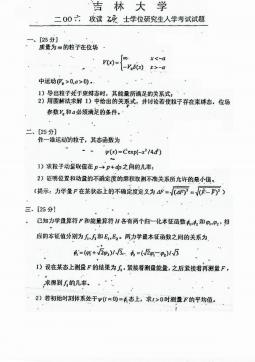 吉林大学
二00六 攻读 硕 士学位研究生入学考试试题
一、[25分]
质量为m的粒子在位场
V(x)={ ∞ x<-a
-V₀δ(x) x>-a
中运动(V₀>0,a>0)。
1)导出粒子处于束缚态时，其能量所满足的关系式；
2)用图解法求解1)中给出的关系式，并讨论若使粒子存在束缚态，位场
参数V₀和a必须满足的条件。
二、[25分]
作一维运动的粒子，其态函数为
ψ(x)=C exp(-x²/4d²)
1)求粒子动量取值在p→p+dp之间的几率；
2)证明位置和动量的不确定度的乘积取测不准关系所允许的最小值。
(提示：力学量F在某状态上的不确定度定义为ΔF=√(ΔF)²=√(F̂-F̄)²)
三、[25分]
已知力学量算符F和能量算符H各有两个归一化本征函数φ₁,φ₂和φ₁,φ₂，相
应的本征值分别为f₁,f₂和E₁,E₂。两力学量本征函数之间的关系为
1)设在某态上测量F的结果为f₁，紧接着测量能量，之后紧接着再测量F，
求得到f₁的几率；
2)若初始时刻体系处于ψ(t=0)=φ₁态上，求t>0时测量F的平均值。